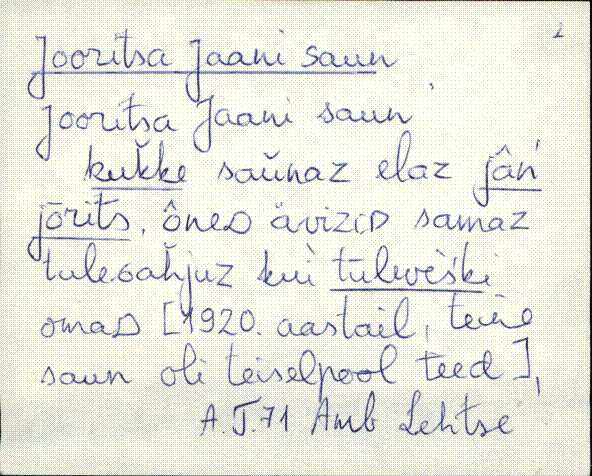 2
Jooritsa Jaani saun
Jooritsa Jaani saun
kuk̆ke saŭnaz elaz jân
jōrits, ôneᴅ ävizіᴅ samaz
tule kui tulewèški
omaᴅ [1920. aastail, teine
saun oli teiselpool teed],
A.J.71 Amb Lehtse